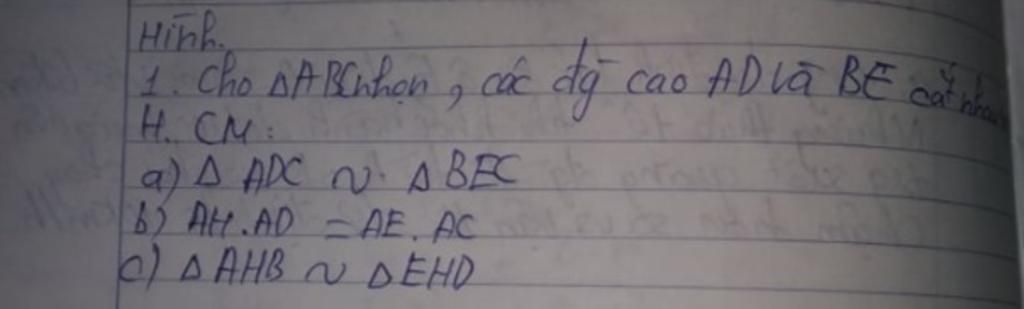 Hình.
1. Cho ΔABC nhọn, các đg cao AD và BE cắt nhau
H. CM:
a) Δ ADC ~ Δ BEC
b) AH.AD = AE.AC
c) Δ AHB ~ Δ EHD